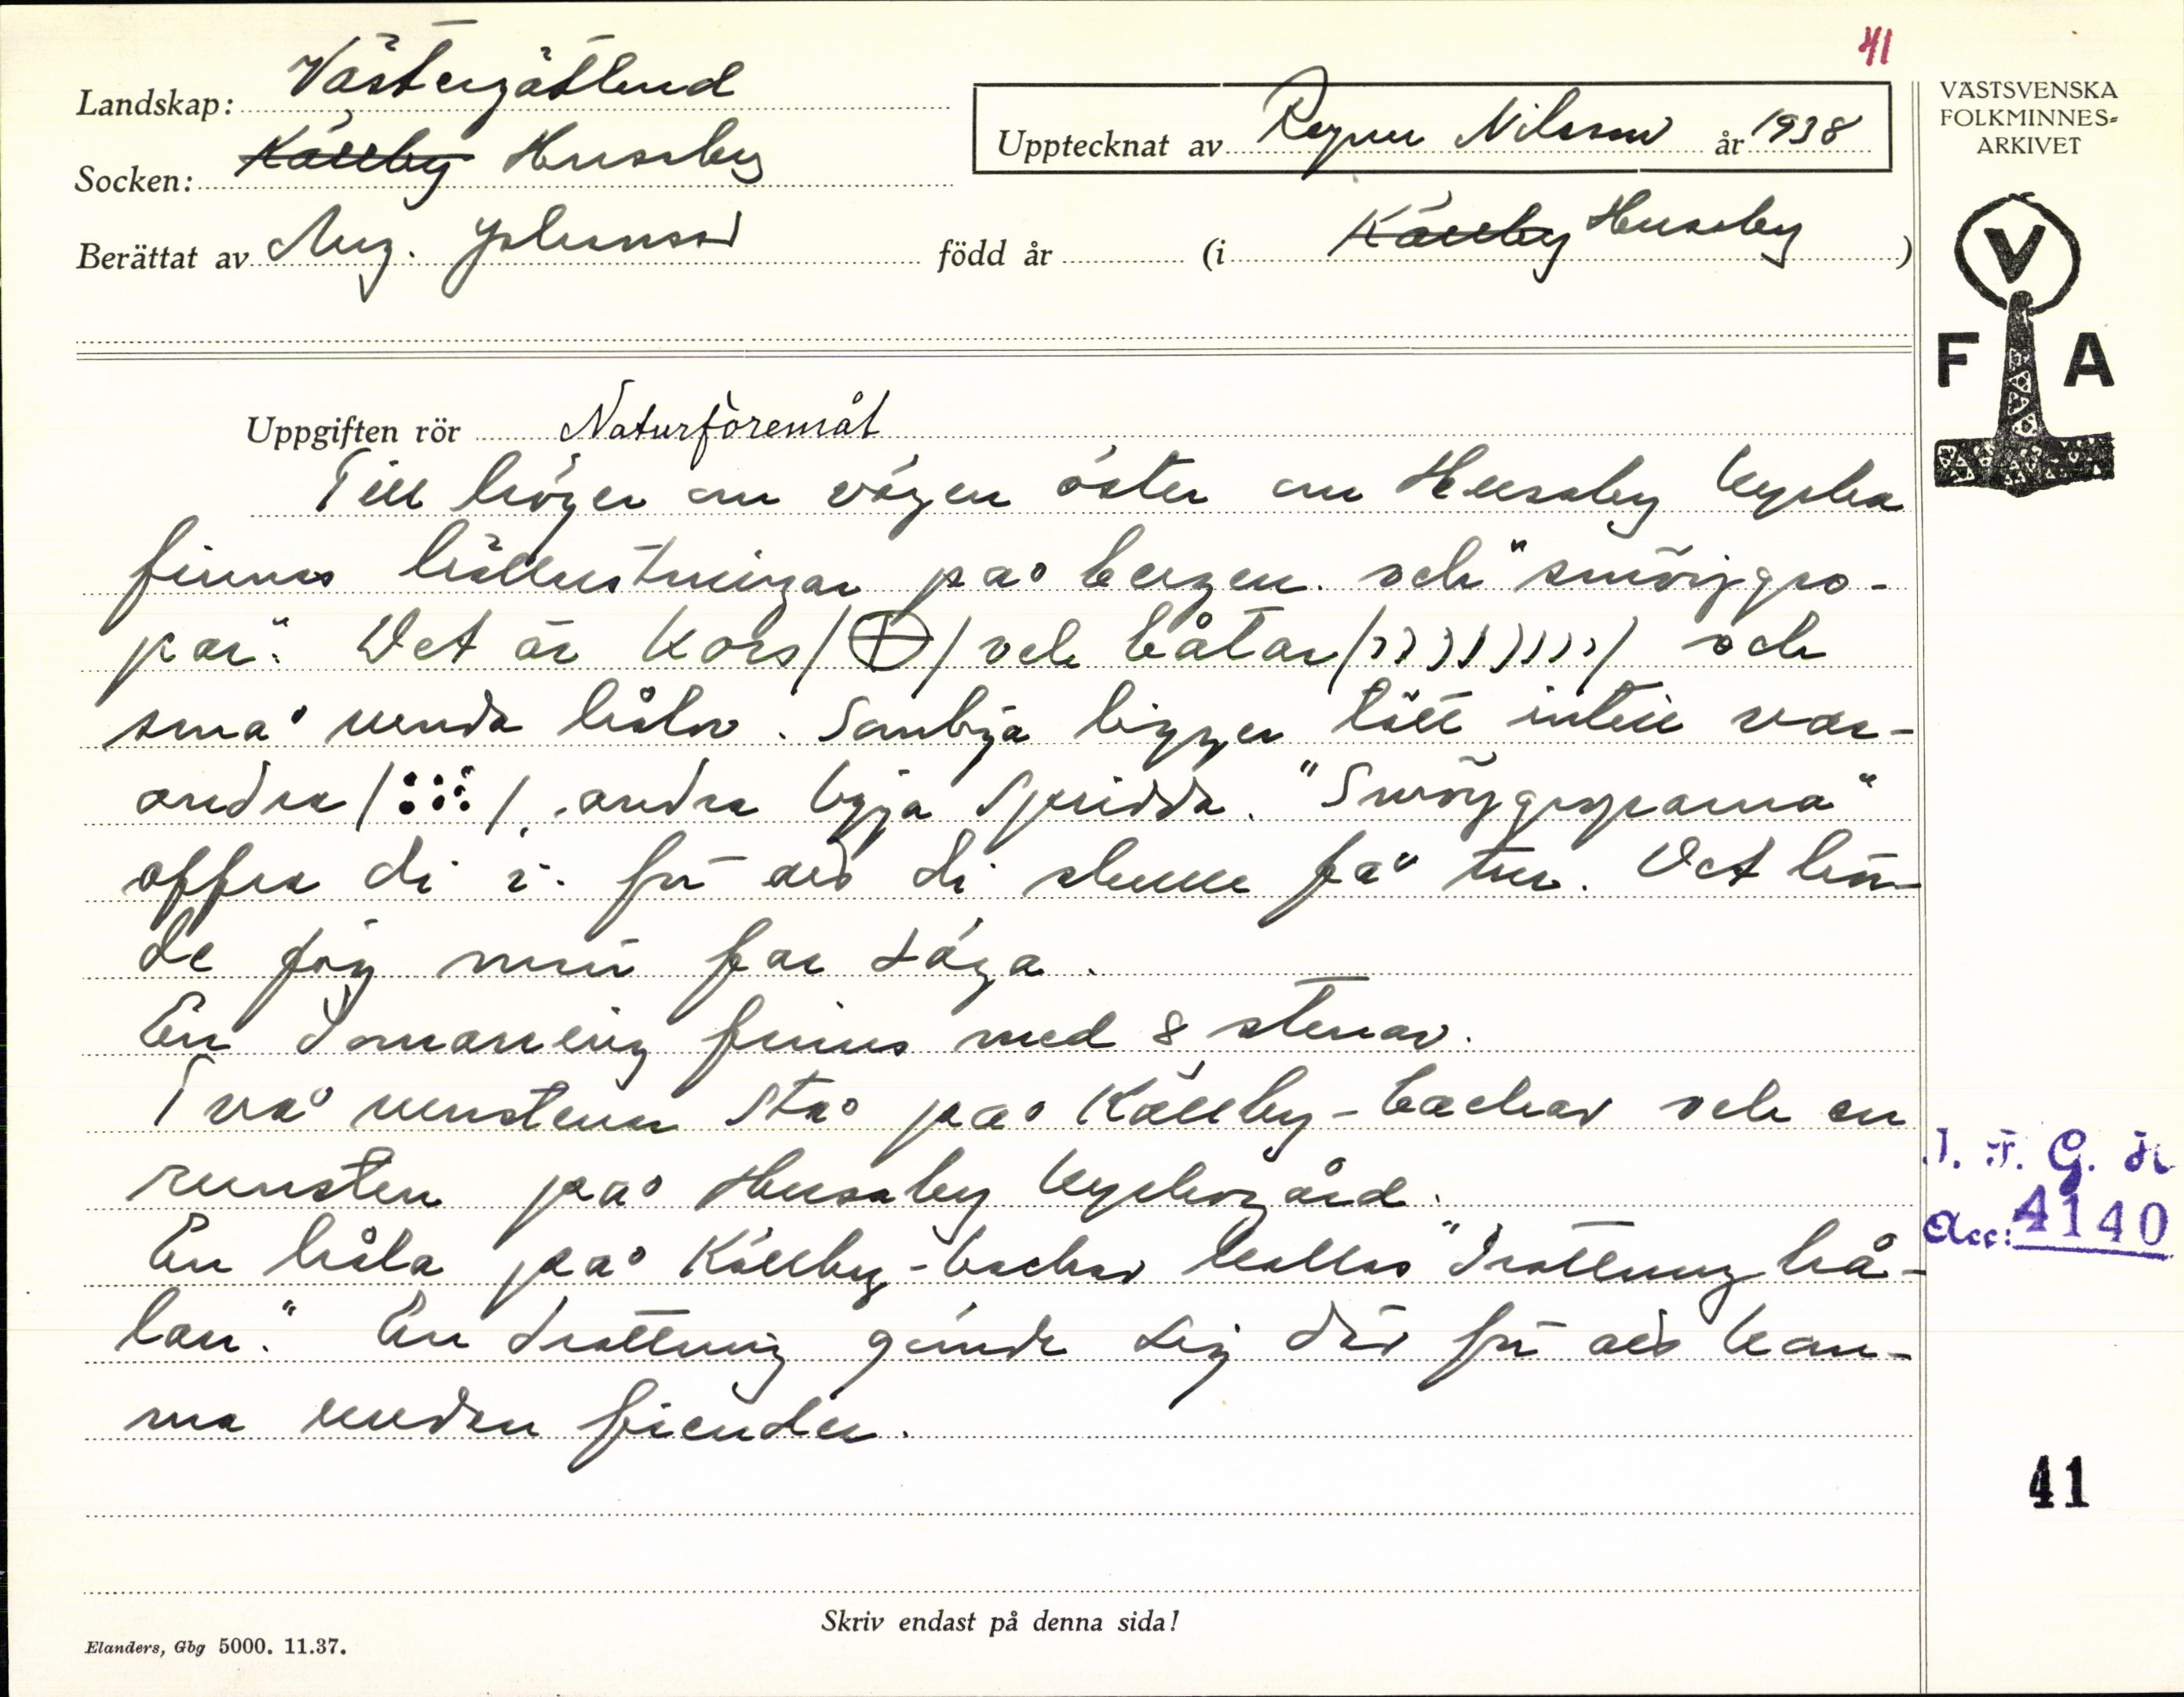 41
Landskap: Västergötland
Socken: Källby Husaby
Upptecknat av Ragnar Nilsson år 1938
Berättat av Aug. Johansson född år (i Källby Husaby )
VÄSTSVENSKA
FOLKMINNES-
ARKIVET
V
F A
Uppgiften rör Naturföremål
Till höger om vägen öster om Husaby kyrka
finnes hällristningar på bergen. och "smörjgro-
par". Det är kors/⊕/ och båtar/))))))))))/ och
små runda hålor. Somliga ligger tätt intill var-
andra/ /, andra ligga spridda. "Smörjgroparna"
offra di i. för att di skulle få tur. Det hör-
de jag min far säga.
En domarring finns med 8 stenar.
Två runstenar stå på Källby-backar och en
runsten på Husaby kyrkogård.
En håla på Källby-backar kallas "drottninghå-
lan." En drottning gömde sig där för att kom-
ma undan fiender.
I. F. G. H
Acc: 4140
41
Skriv endast på denna sida!
Elanders, Gbg 5000. 11.37.